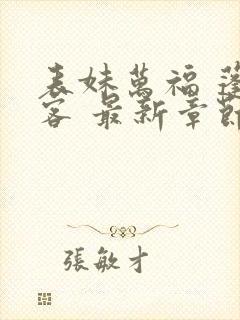 表妹萬福 蓬
客 最新章節
張敏才